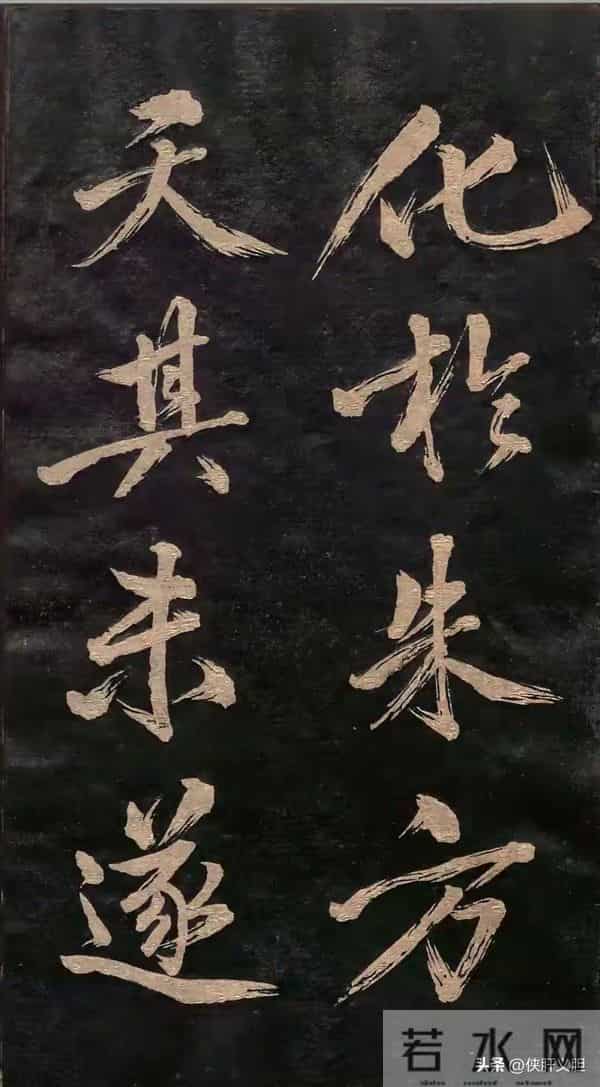 化於朱方
天其未遂
若水网
头条 @侠肝义胆